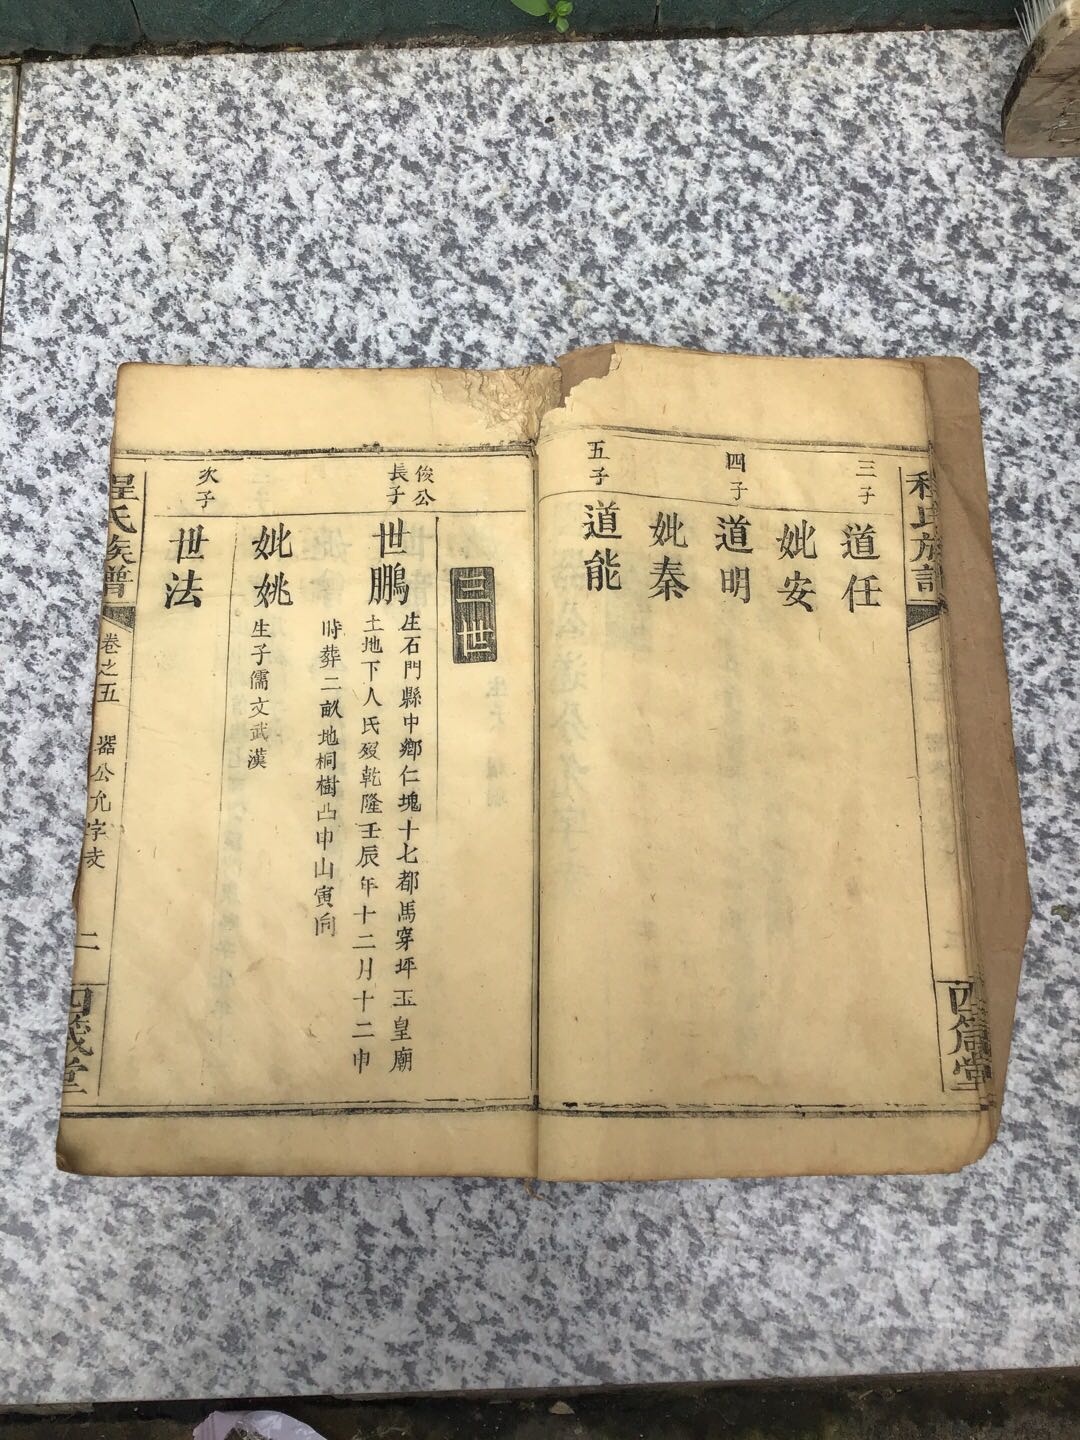 程氏族譜
四箴堂
三子
道任
妣安
四子
道明
妣秦
五子
道能
三世
俊公
長子
世鵬
生石門縣中鄉仁塊十七都馬穿坪玉皇廟
土地下人氏歿乾隆壬辰年十二月十二申
時葬二畝地桐樹凸申山寅向
妣姚
生子儒文武漢
次子
世法
程氏族譜
卷之五
器公允字支
二
四箴堂